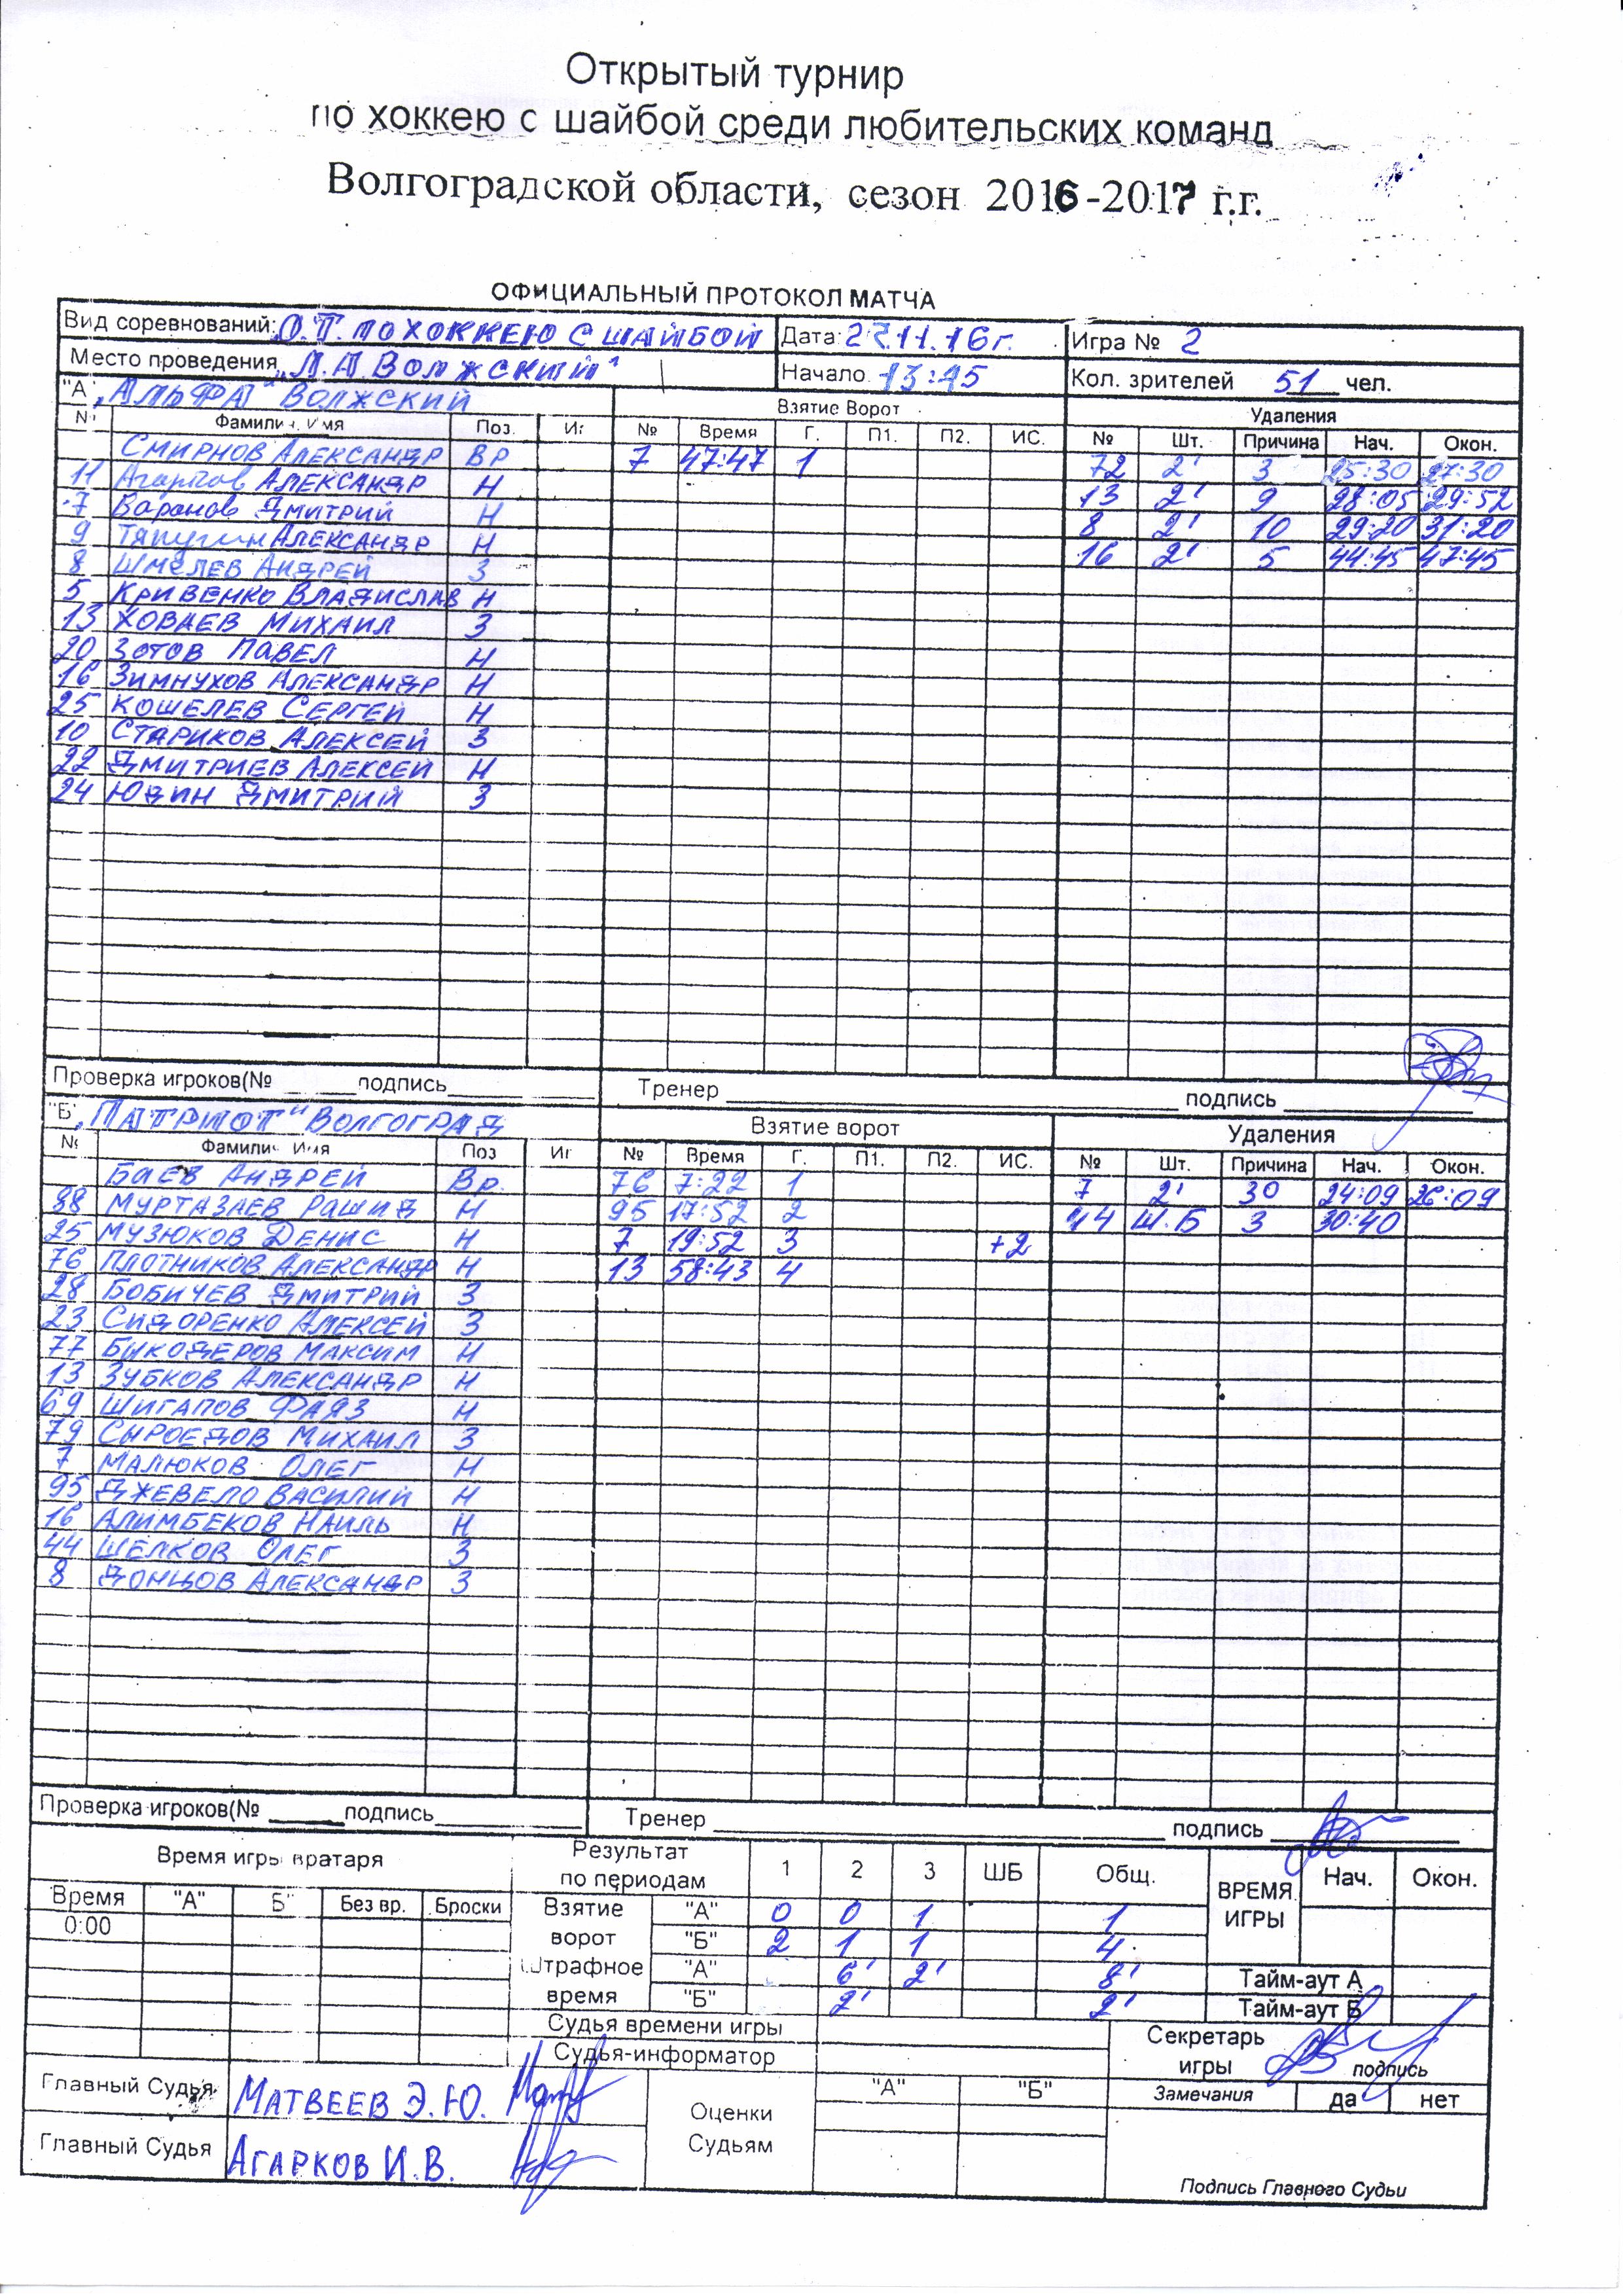 Открытый турнир
по хоккею с шайбой среди любительских команд
Волгоградской области, сезон 2016-2017 г.г.
ОФИЦИАЛЬНЫЙ ПРОТОКОЛ МАТЧА
Вид соревнований: О.Т. ПО ХОККЕЮ С ШАЙБОЙ Дата: 27.11.16г. Игра № 2
Место проведения "Л.А ВОЛЖСКИЙ" Начало 13:45 Кол. зрителей 51 чел.
"А" "АЛЬФА" ВОЛЖСКИЙ Взятие Ворот Удаления
№ Фамилия, Имя Поз. Иг № Время Г. П1. П2. ИС. № Шт. Причина Нач. Окон.
СМИРНОВ АЛЕКСАНДР ВР 7 47:47 1 72 2' 3 25:30 27:30
11 АЛЕКСАНДР Н 13 2' 9 28:05 29:52
7 Варанов ДМИТРИЙ Н 8 2' 10 29:20 31:20
9 Тяпугин АЛЕКСАНДР Н 16 2' 5 44:45 47:45
8 ШМЕЛЕВ АНДРЕЙ З
5 КРИВЕНКО ВЛАДИСЛАВ Н
13 ХОВАЕВ МИХАИЛ З
20 ЗОТОВ ПАВЕЛ Н
16 ЗИМНУХОВ АЛЕКСАНДР Н
25 КОШЕЛЕВ СЕРГЕЙ Н
10 СТАРИКОВ АЛЕКСЕЙ З
22 ДМИТРИЕВ АЛЕКСЕЙ Н
24 ЮДИН ДМИТРИЙ З
Проверка игроков(№ подпись Тренер подпись
"Б" "ПАТРИОТ" ВОЛГОГРАД Взятие ворот Удаления
№ Фамилия, Имя Поз Иг № Время Г. П1. П2. ИС. № Шт. Причина Нач. Окон.
БАЕВ АНДРЕЙ Вр. 76 7:22 1 7 2' 30 24:09 26:09
88 МУРТАЗАЕВ РАШИД Н 95 17:52 2 44 Ш.Б 3 30:40
25 МУЗЮКОВ ДЕНИС Н 7 19:52 3 +2
76 ПЛОТНИКОВ АЛЕКСАНДР Н 13 58:43 4
28 БОБИЧЕВ ДМИТРИЙ З
23 СИДОРЕНКО АЛЕКСЕЙ З
77 БЫКОДЕРОВ МАКСИМ Н
13 ЗУБКОВ АЛЕКСАНДР Н
69 ШИГАПОВ ФАЯЗ Н
79 СЫРОЕДОВ МИХАИЛ З
7 МАЛЮКОВ ОЛЕГ Н
95 ДЖЕВЕЛО ВАСИЛИЙ Н
16 АЛИМБЕКОВ НАИЛЬ Н
44 ШЕЛКОВ ОЛЕГ З
8 ДОНЦОВ АЛЕКСАНДР З
Проверка игроков(№ подпись Тренер подпись
Время игры вратаря Результат по периодам 1 2 3 ШБ Общ. ВРЕМЯ ИГРЫ Нач. Окон.
Время "А" Б" Без вр. Броски Взятие ворот "А" 0 0 1 1
0:00 "Б" 2 1 1 4
Штрафное время "А" 6' 2' 8' Тайм-аут А
"Б" 2' 2' Тайм-аут Б
Судья времени игры Секретарь игры подпись
Судья-информатор
Главный Судья МАТВЕЕВ Э.Ю. Оценки Судьям "А" "Б" Замечания да нет
Главный Судья АГАРКОВ И.В.
Подпись Главного Судьи